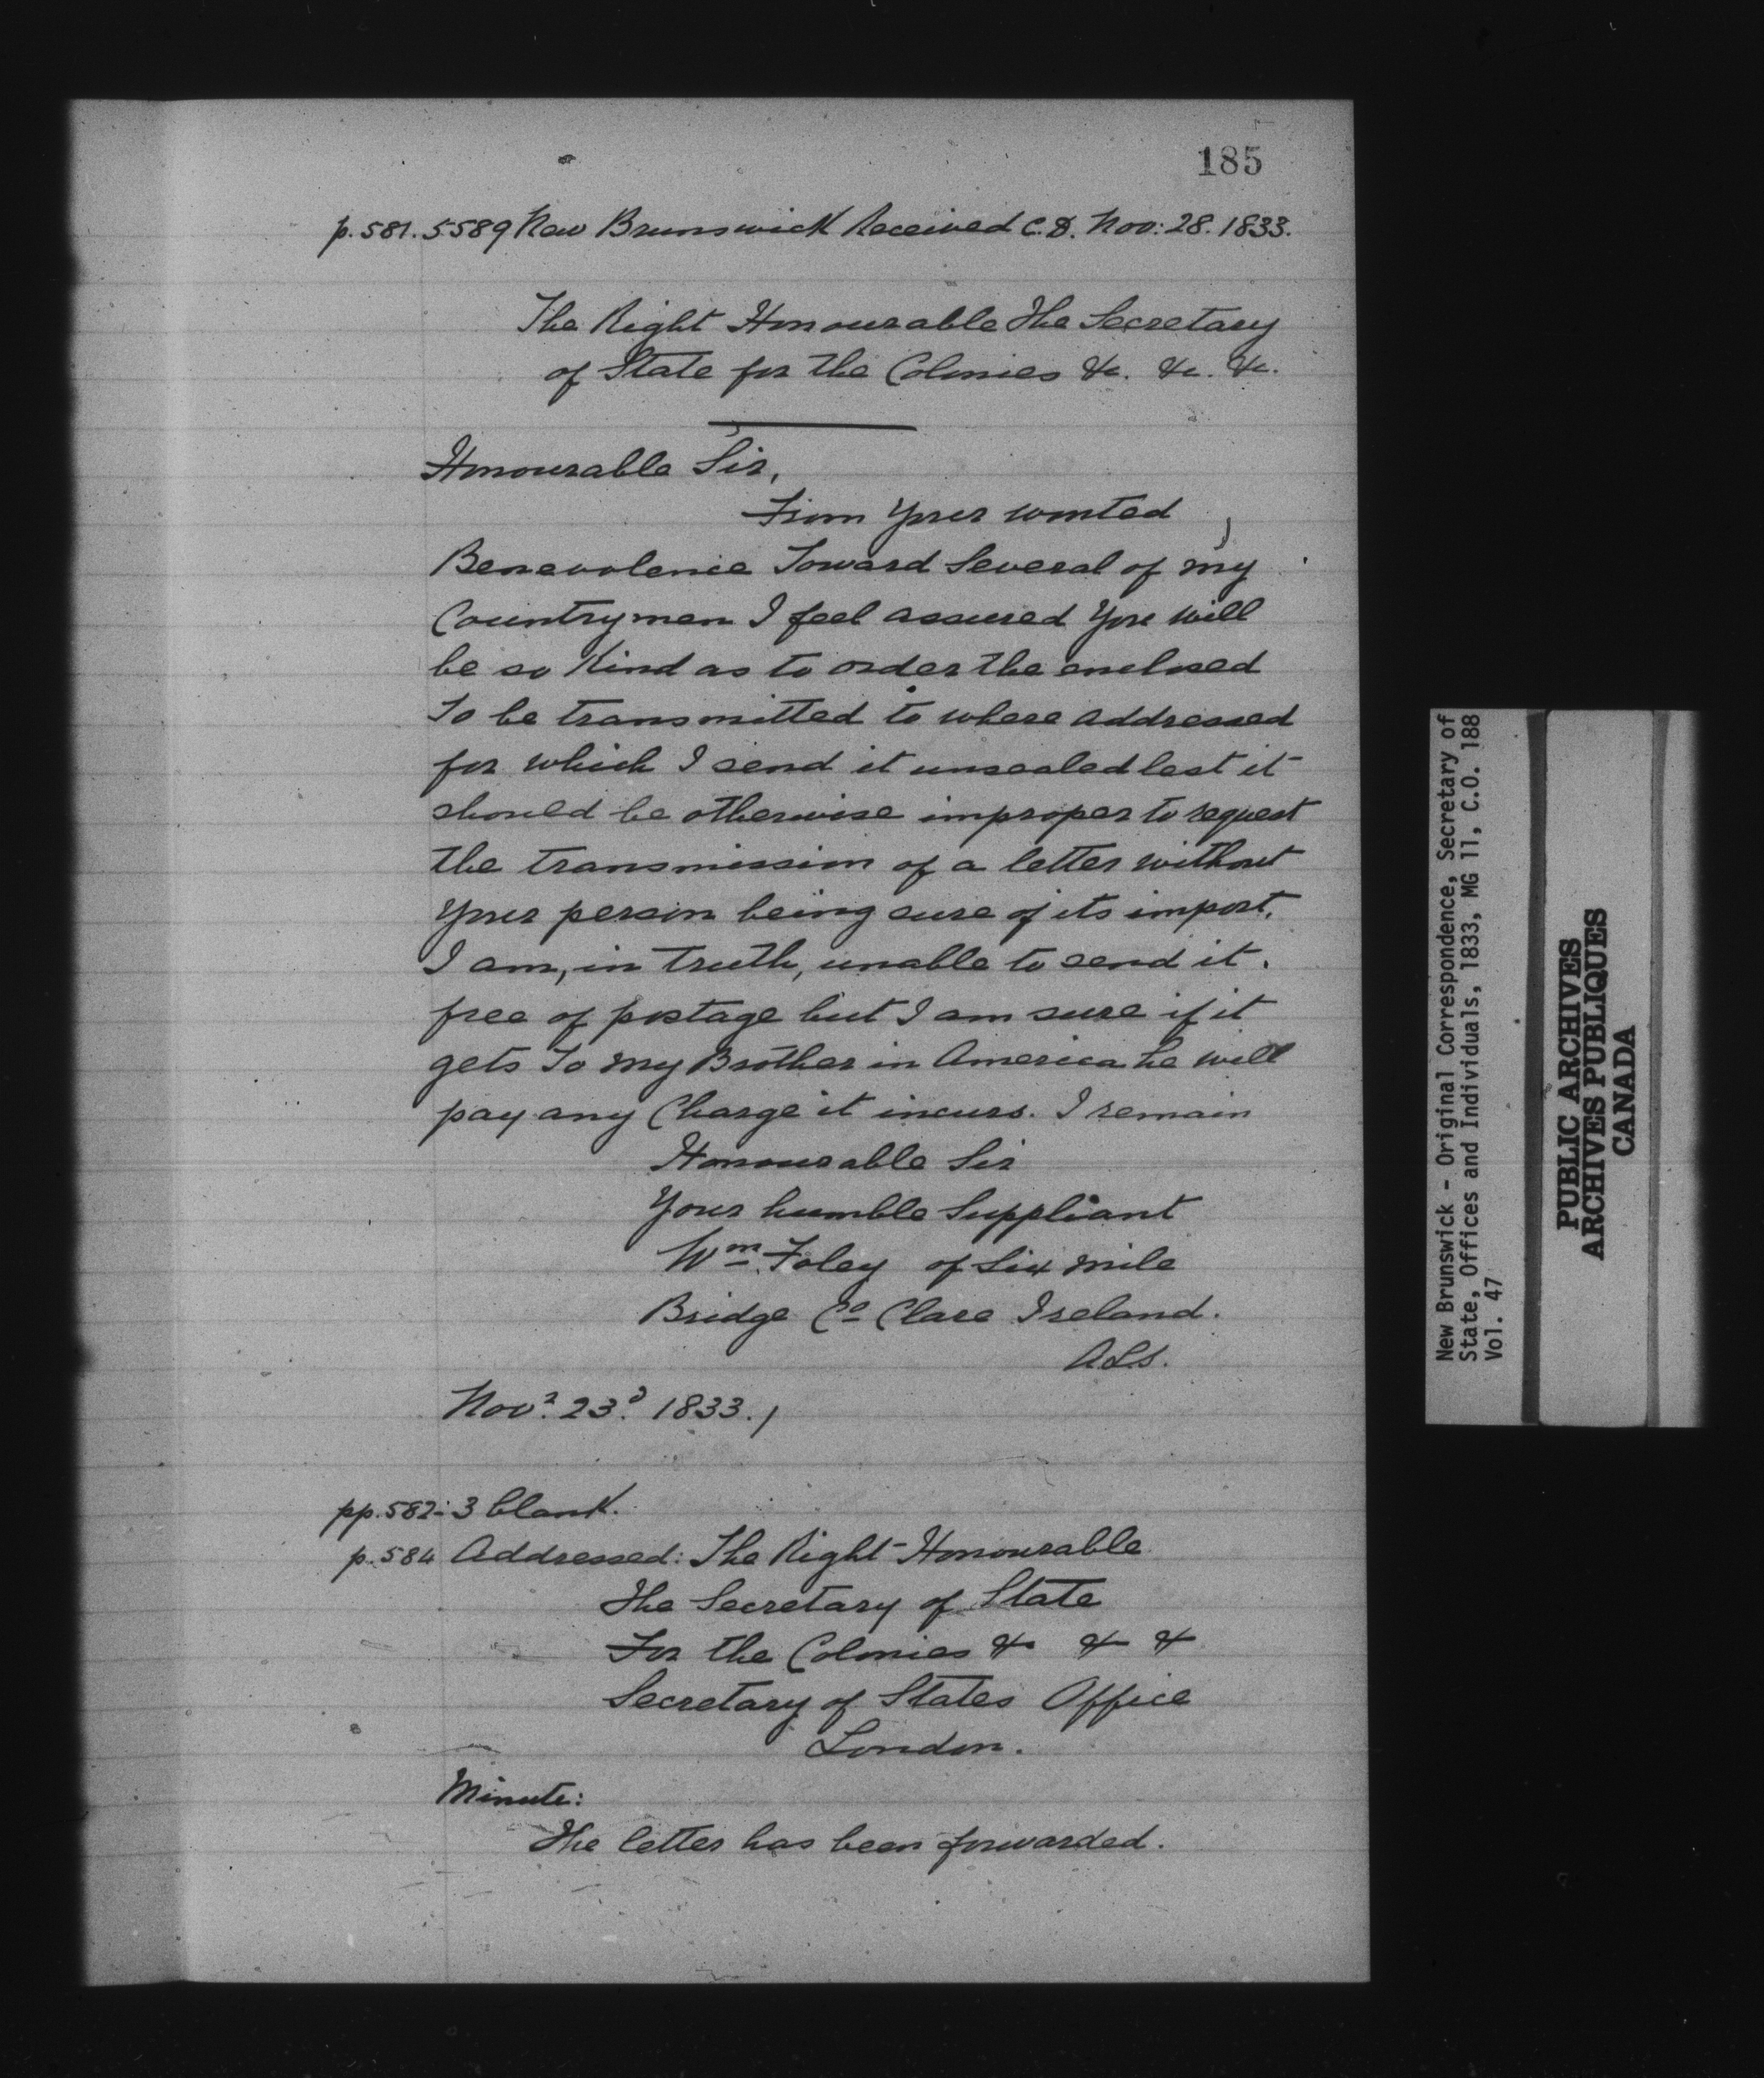 185
p.581. 5589 New Brunswick Received C.D. Nov: 28. 1833.
The Right Honourable The Secretary
of State for the Colonies &c. &c. &c.
Honourable Sir,
From Your wonted
Benevolence Toward Several of my
Countrymen I feel assured You will
be so Kind as to order the enclosed
To be transmitted to where addressed
for which I send it unsealed lest it
should be otherwise improper to request
the transmission of a letter without
Your person being sure of its import.
I am, in truth, unable to send it.
free of postage but I am sure if it
gets To my Brother in America he will
pay any Charge it incurs. I remain
Honourable Sir
Your humble Suppliant
Wm. Foley of Six mile
Bridge Co Clare Ireland.
A.L.S.
Novr. 23d. 1833.
pp. 582-3 blank.
p. 584 Addressed: The Right Honourable
The Secretary of State
For the Colonies & & &
Secretary of States Office
London.
Minute:
The letter has been forwarded.
New Brunswick - Original Correspondence, Secretary of
State, Offices and Individuals, 1833, MG 11, C.O. 188
Vol. 47
PUBLIC ARCHIVES
ARCHIVES PUBLIQUES
CANADA